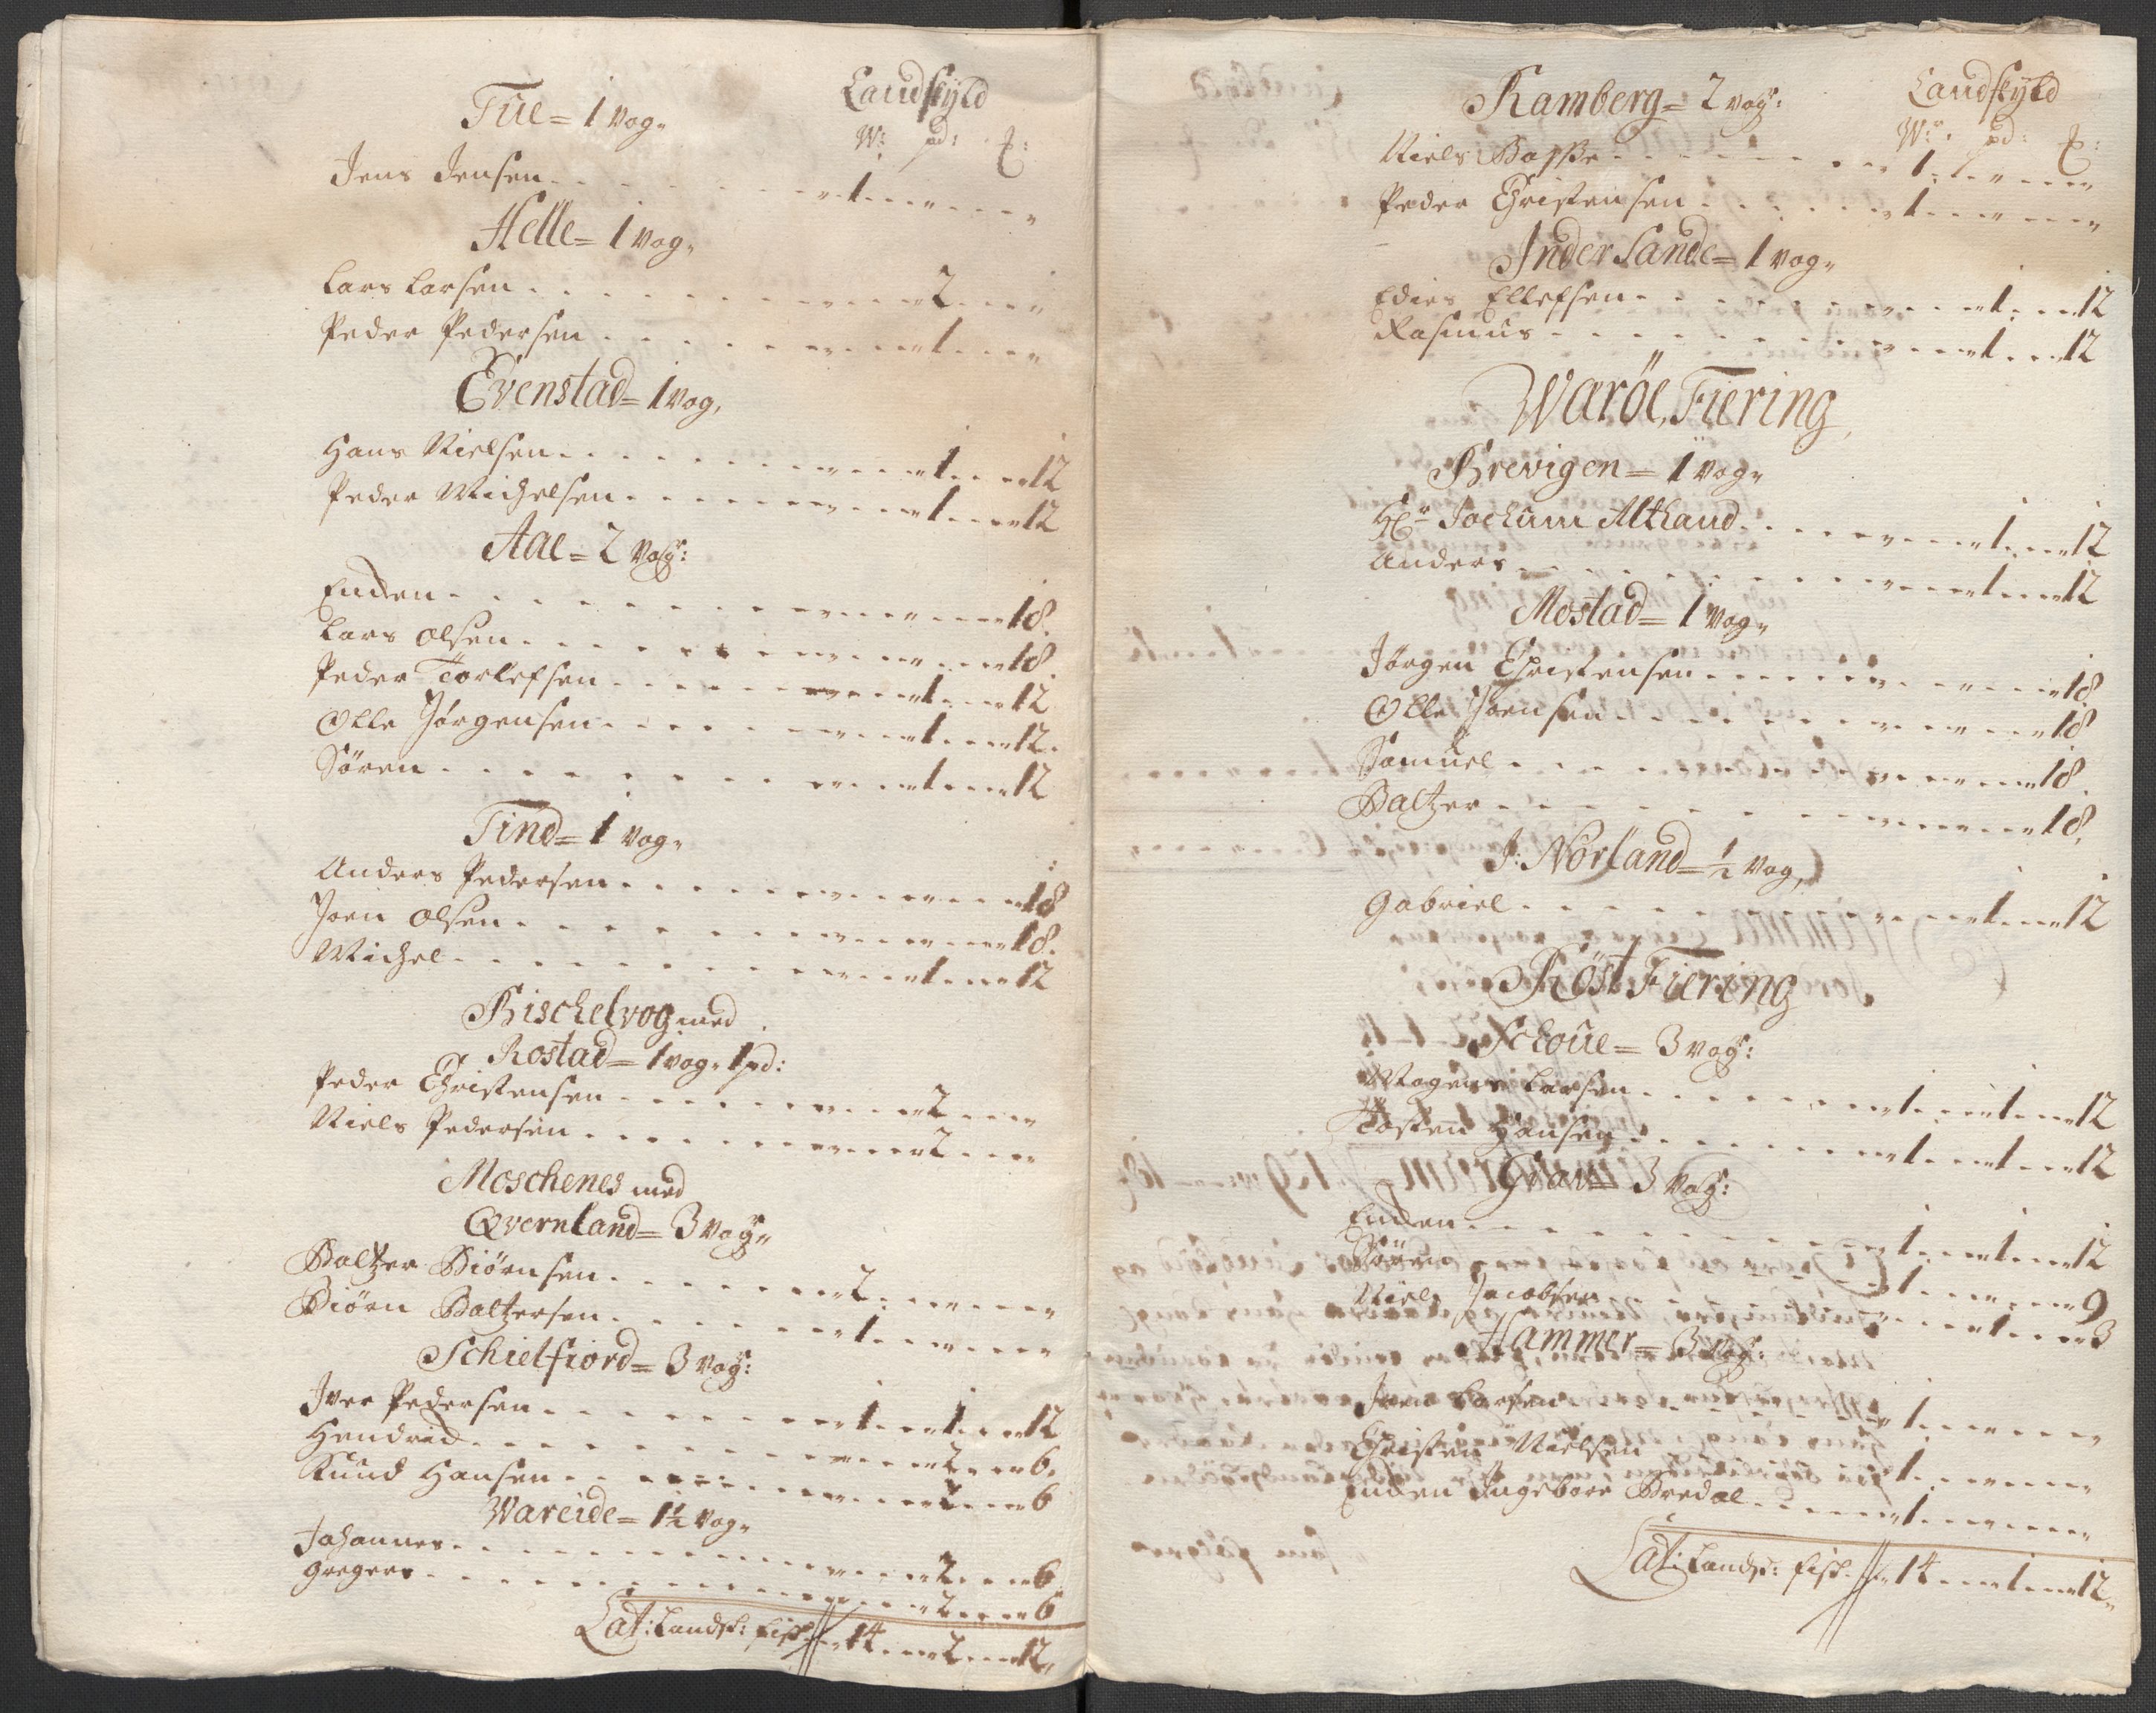 Landskyld
Tue = 1 Vog„
W: pd: ℔:
Jens Jensen - - - „ - 1 - - „ - - „
Helle = 1 Vog„
Lars Larsen - - - „ - - 2 - - „
Peder Pedersen - - - „ - - 1 - - „
Evenstad = 1 Vog,
Hans Nielsen - - - „ - - 1 - - 12
Peder Michelsen - - - „ - - 1 - - 12
Aae = 2 Vog:
Enken - - - „ - - „ - - 18.
Lars Olsen - - - „ - - „ - - 18.
Peder Torlefsen - - - „ - - 1 - - 12
Olle Jørgensen - - - „ - - 1 - - 12.
Sören - - - „ - - 1 - - 12
Tind = 1 Vog„
Anders Pedersen - - - „ - - „ - - 18
Joen Olsen - - - „ - - „ - - 18.
Michel - - - „ - - 1 - - 12
Bischelvog med
Rostad = 1 vog„ 1 pd:
Peder Christensen - - - „ - - 2 - - „
Niels Pedersen - - - „ - - 2 - - „
Moschenes med
Qvernland = 3 Vog„
Baltzer Biörnsen - - - 2 - - „ - - „
Biörn Baltzersen - - - 1 - - „ - - „
Schielfiord = 3 Vog:
Iver Pedersen - - - 1 - - 1 - - 12
Hendrich - - - „ - - 2 - - 6.
Knud Hansen - - - „ - - 2 - - 6
Wareide = 1½ Vog„
Johannes - - - „ - - 2 - - 6
Gregers - - - „ - - 2 - - 6
Lat: Landsk: fisk - - 14 - - 2 - - 12„
Landskyld
Ramberg = 2 vog:
W: pd: ℔:
Niels Basse - - - 1 - - „ - - „
Peder Christensen - - - 1 - - „ - - „
Inder Sande = 1 vog„
Edies Ellefsen - - - „ - - 1 - - 12
Rasmus - - - „ - - 1 - - 12
Waröe, Fiering,
Brevigen = 1 Vog„
Hr Jochum Althand - - - „ - - 1 - - 12
Anders - - - „ - - 1 - - 12
Mostad = 1 Vog„
Jörgen Christensen - - - „ - - „ - - 18
Olle Joensen - - - „ - - „ - - 18
Samuel - - - „ - - „ - - 18.
Baltzer - - - „ - - „ - - 18.
J: Nörland = ½ Vog,
Gabriel - - - „ - - 1 - - 12
Röst Fiering
Schoue = 3 vog:
Mogens Larsen - - - 1 - - 1 - - 12
Tosten Hansen - - - 1 - - 1 - - 12
3 Vog:
Enken - - - 1 - - 1 - - 12
Sören - - - 1 - - „ - - 9
Niels Jacobsen - - - „ - - 1 - - 3
Hammer = 3 Vog:
Iver Larsen - - - 1 - - „ - - „
Christen Nielsen - - - 1 - - „ - - „
Enken Ingebore Bredal - - - 1 - - „ - - „
Lat: Landsk: fisk - - 14 - - 1 - - 12„